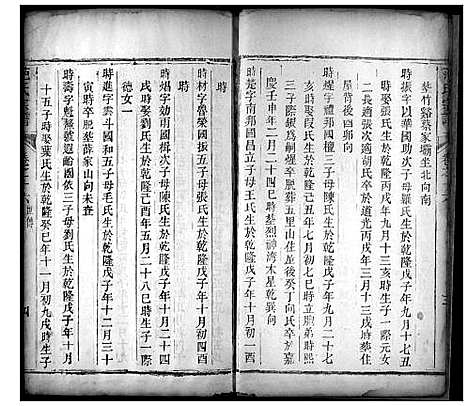 葬竹谿蔡家壩坐北向南
時發字以華國助次子母羅氏生於乾隆戊子年十月十七丑
時娶張氏生於乾隆丙戌年九月十三亥時生子一際元女
二長適張次適胡氏卒於道光丙戌年三月十三戌時葬住
屋背後曰卯向
時燦字 邦國檀三子母陳氏生於乾隆戊子年十月初一
亥時娶段氏生於乾隆己丑年七月初九巳時立服弟時熙
三子際桓為嗣燦卒葬五里山住丘後癸丁向氏卒於嘉
慶壬申年二月二十四日巳時葬烈神湾木星乾巽向
時楚字南邦國昌立子母王氏生於乾隆戊子年十月初一酉
時
時材字魯榮國振五子母張氏生於乾隆戊子年十月初四酉
時焻字効甫國楫次子母陳氏生於乾隆戊子年十月二十四
戌時娶劉氏生於乾隆己酉年五月二十八巳時生子一際
德女一
時進字雲斗國和五子母毛氏生於乾隆戊子年十二月三十
寅時卒肥葬薛家山向未查
時壽字魁 號遐齡國依三子母劉氏生於乾隆戊子年十月
十五子時娶葉氏生於乾隆癸巳年十一月初九戌時生子
四